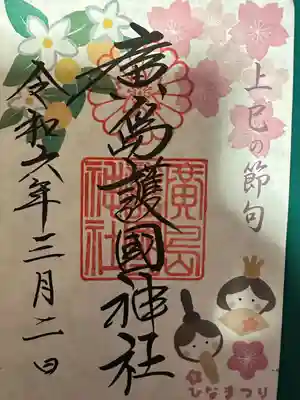 上巳の節句
廣島護國神社
廣島
神社
令和六年三月二日
ひなまつり